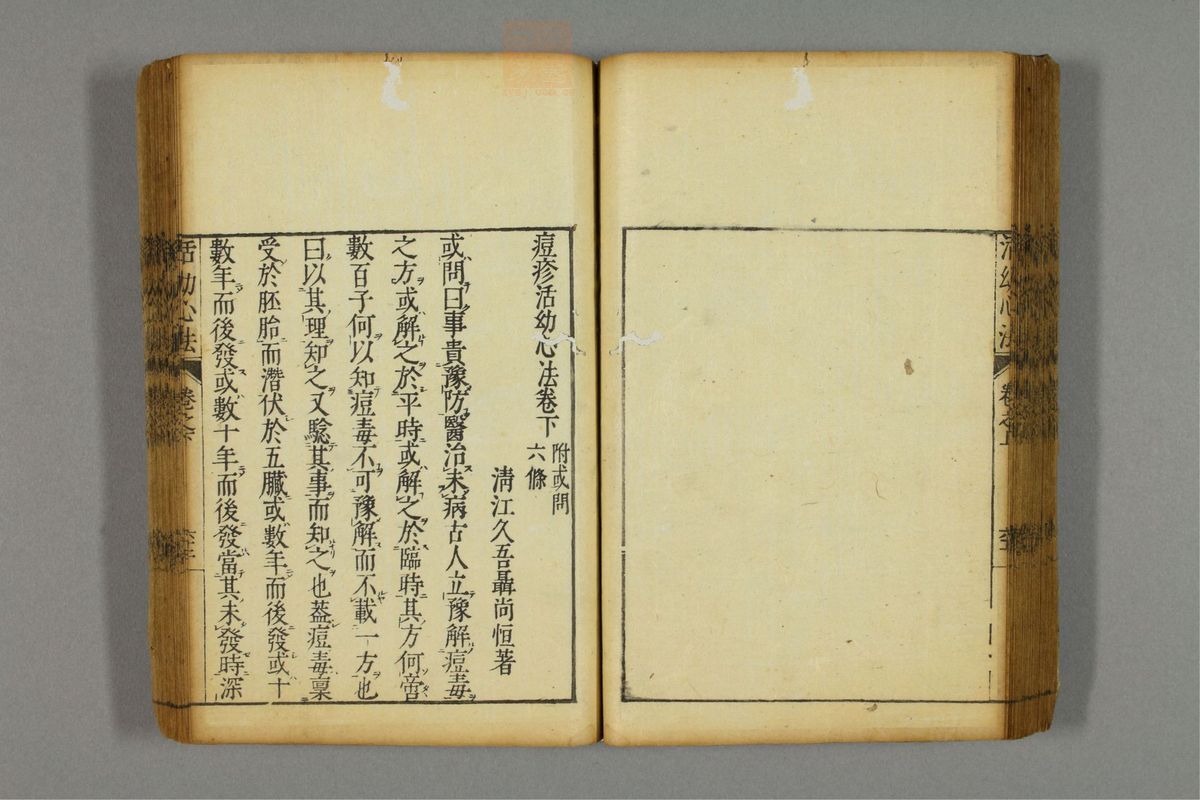 活幼心法
卷之上
痘疹活幼心法卷下
附或問
六條
清江久吾聶尚恒著
或問曰事貴豫防醫治未病古人立豫解痘毒
之方或解之於平時或解之於臨時其方何啻
數百子何以知痘毒不可豫解而不載一方也
曰以其理知之又驗其事而知之也葢痘毒稟
受於胚胎而潛伏於五臟或數年而後發或十
數年而後發或數十年而後發當其未發時深
活幼心法
卷之下